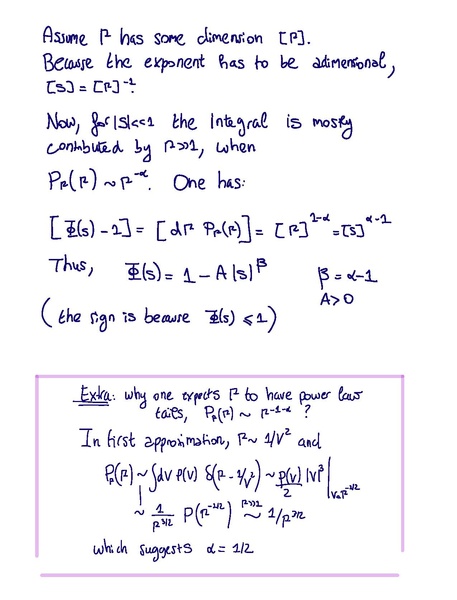 Assume Γ has some dimension [Γ].
Because the exponent has to be adimensional,
[s] = [Γ]⁻¹.
Now, for |s|<<1 the integral is mostly
contributed by Γ>>1, when
P_Γ(Γ) ~ Γ^-α. One has:
[Φ(s) - 1] = [dΓ P_Γ(Γ)] = [Γ]^1-α = [s]^α-1
Thus, Φ(s) = 1 - A |s|^β β = α-1
A>0
(the sign is because Φ(s) ⩽ 1)
Extra: why one expects Γ to have power law
tails, P_Γ(Γ) ~ Γ^-1-α ?
In first approximation, Γ ~ 1/V² and
P_Γ(Γ) ~ ∫dV P(V) δ(Γ - 1/V²) ~ P(V)/2 |V|³ |_V=Γ^-1/2
~ 1/Γ^3/2 P(Γ^-1/2) ~^Γ>>1 1/Γ^3/2
which suggests α = 1/2